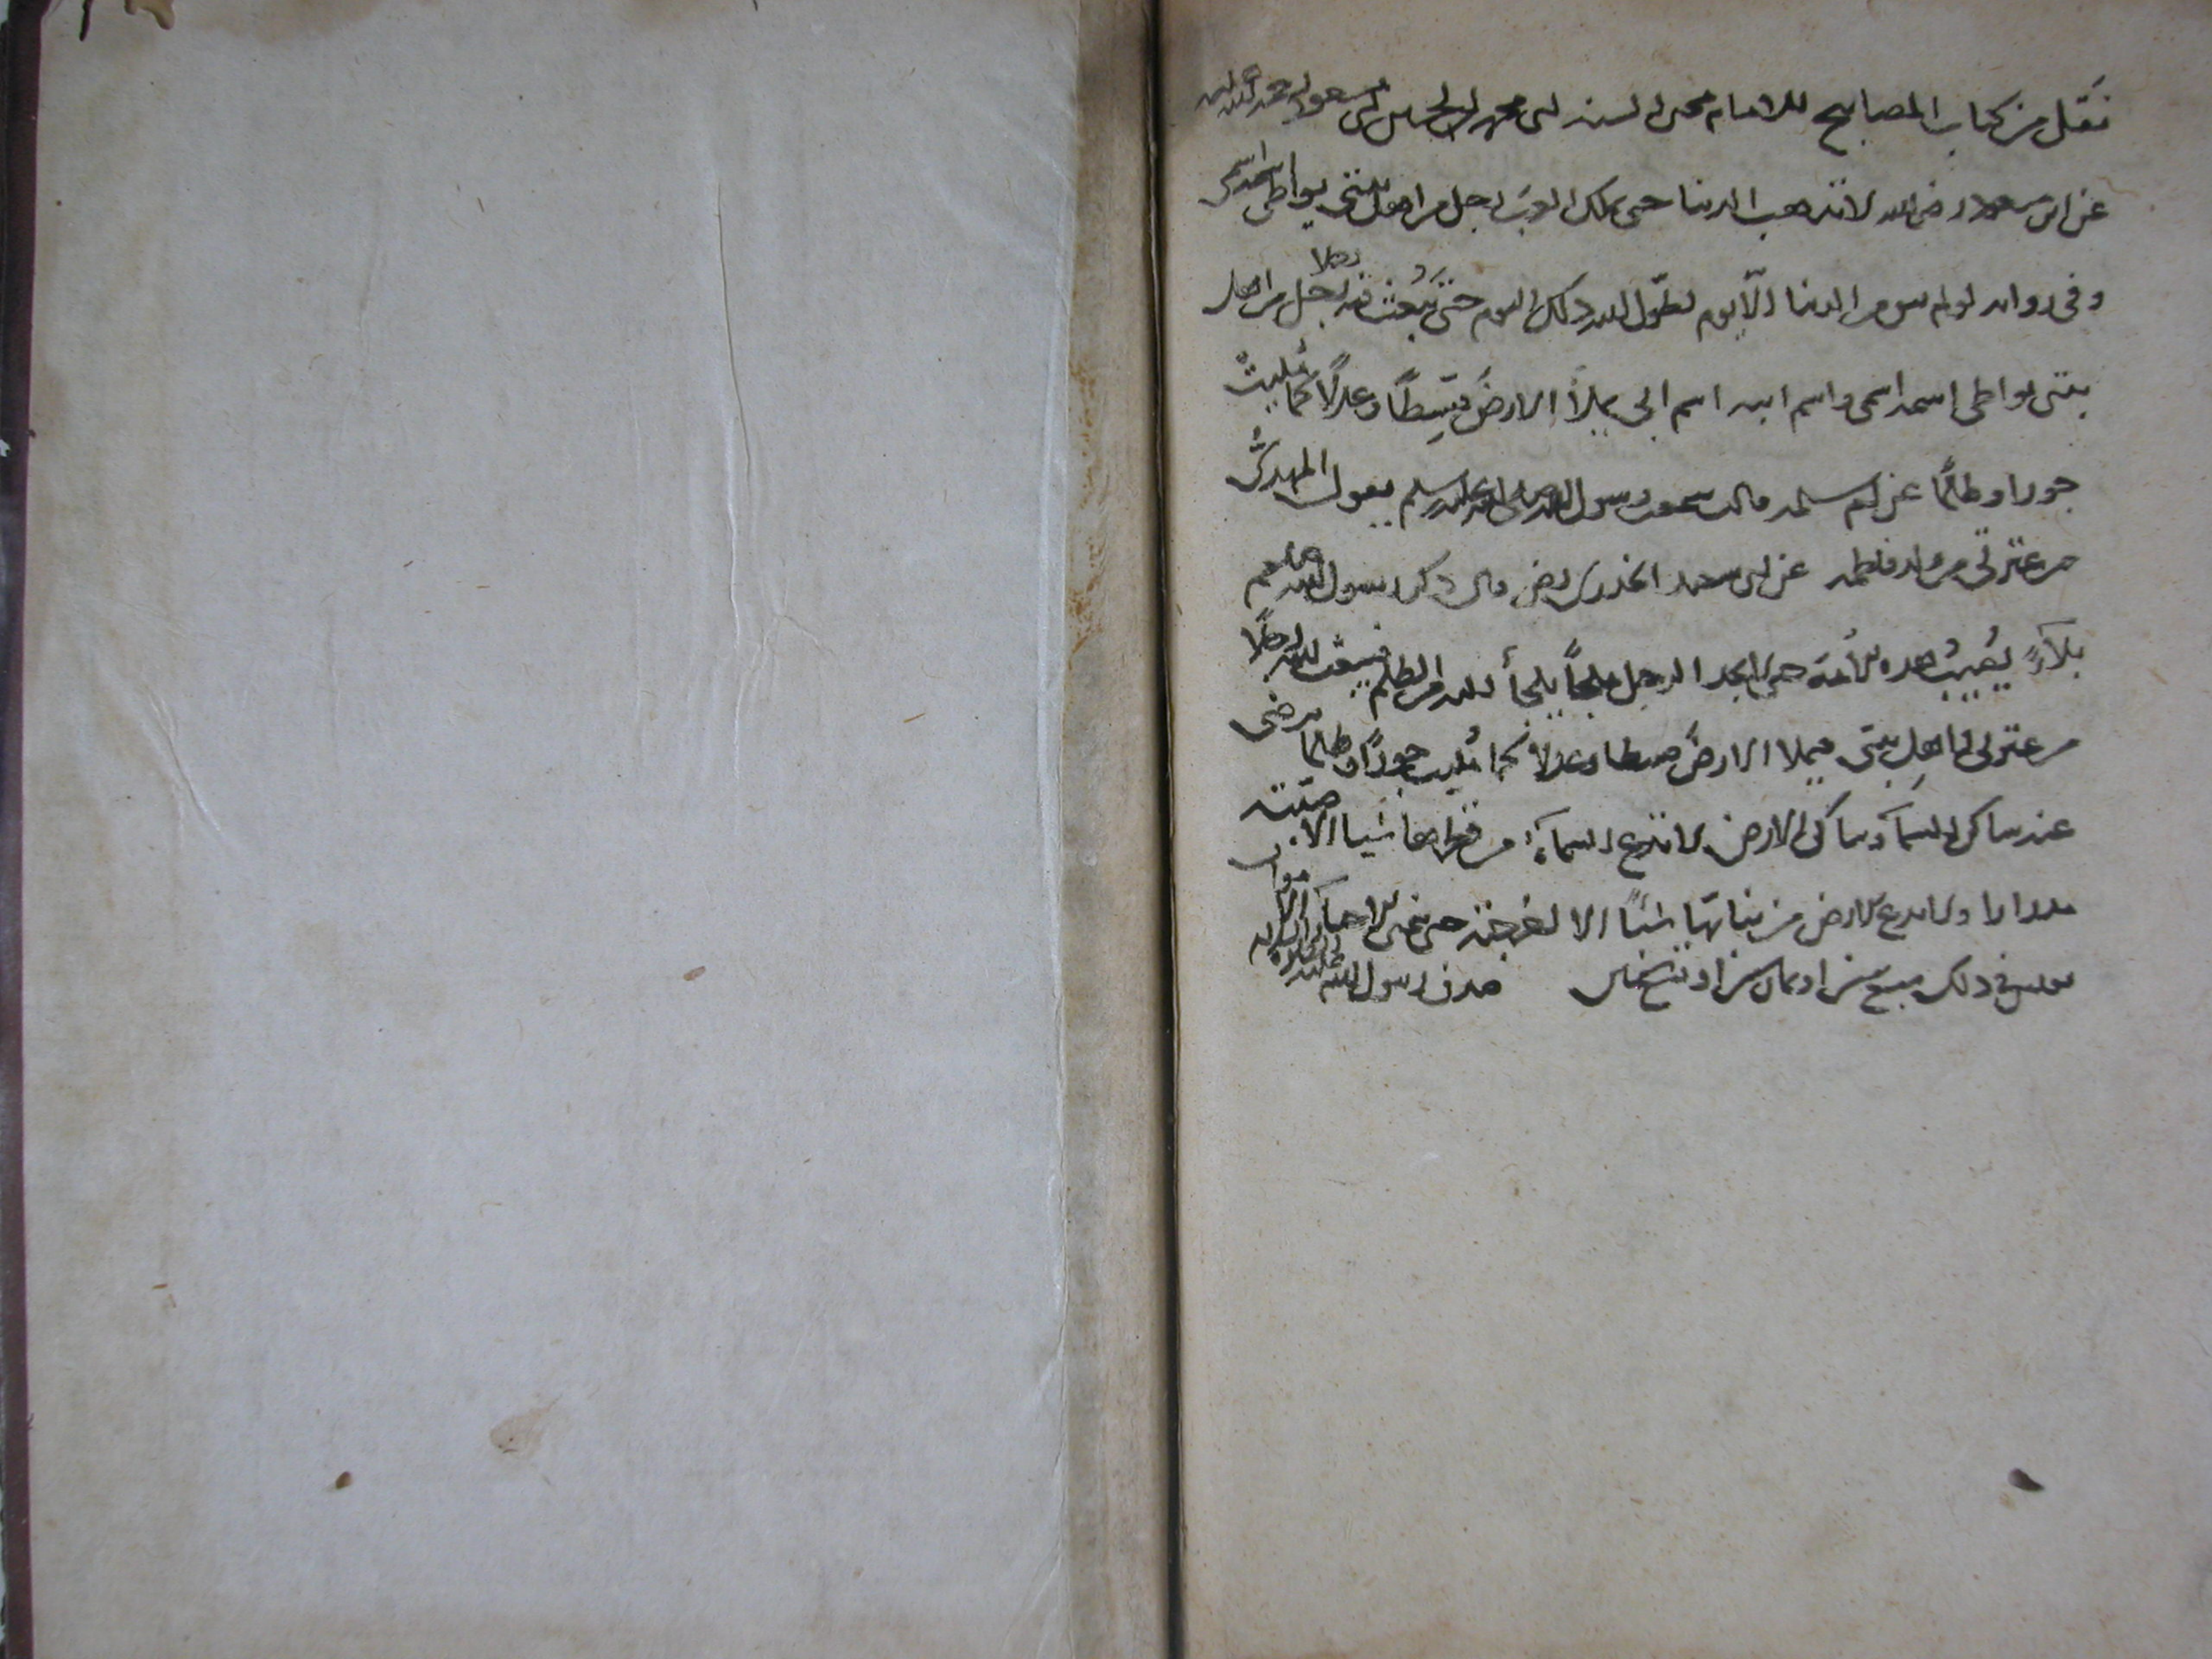 نقل من كتاب المصابيح للامام محى السنه ابى محمد الحسين بن مسعود رحمة الله
عن ابن مسعود رضى الله لا تذهب الدنيا حتى يملك العرب رجل من اهل بيتى يواطى اسمه اسمى
وفى روايه لو لم يبق من الدنيا الّا يوم لطوّل الله ذلك اليوم حتى يَبْعث فيه رجل رجلا من اهل
بيتى يواطى اسمه اسمى واسم ابيه اسم ابى يملأ الارضَ قِسطًا وعدلًا كما مُلِيتْ
جورا وظلمًا عن ام سلمه قالت سمعت رسول الله صلى الله عليه وسلم يقول المهدىُّ
من عترتى من ولد فاطمه عن ابى سعيد الخدرى رضى قال ذكر رسول الله صلعم
بلآءً يُصيبُ هذه الأمّة حتى لا يجد الرجل ملجأً يلجأ اليه من الظلم فيبعث الله رجلًا
من عترتى اهلِ بيتى فيملا الارضَ قسطا وعدلا كما مُليت جورًا وظلما يرضى
عنه ساكن السمآء وساكن الارض لا تدع السمآء من قطرها شيا الا صبّته
مدرارا ولا تدع الارض من نباتها شيئًا الا اخرجته حتى يتمنى الاحيآء الاموات
يعيش فى ذلك سبع سنين او ثمان سنين او تسع سنين صدق رسول الله عليه